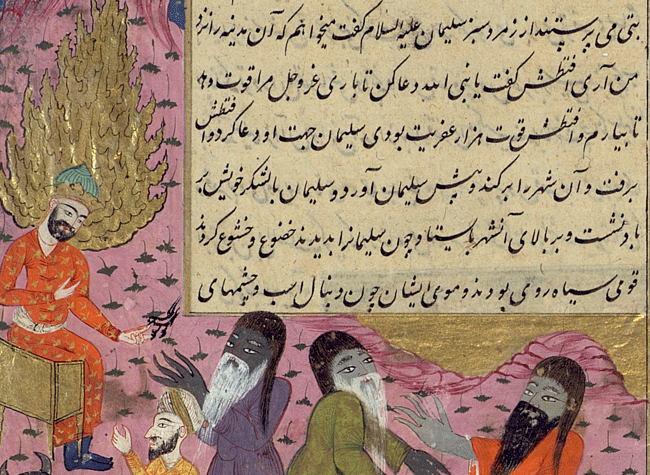 بتی می پرستیدند از زمرد سبز سلیمان علیه السلام گفت میخواهم که آن مدینه را نزد
من آری افتطش گفت یا نبی الله دعا کن تا باری عز و جل مرا قوت دهد
تا بیارم و افتطش قوت هزار عفریت بودی سلیمان جهت او دعا کرد و افتطش
برفت و آن شهر را بر کند و پیش سلیمان آورد و سلیمان با لشکر خویش بر
باد نشست و بر بالای آنشهر بایستاد و چون سلیمانرا بدیدند خضوع و خشوع کردند
قومی سیاه روی بودند و موی ایشان چون دنبال اسب و چشمهای